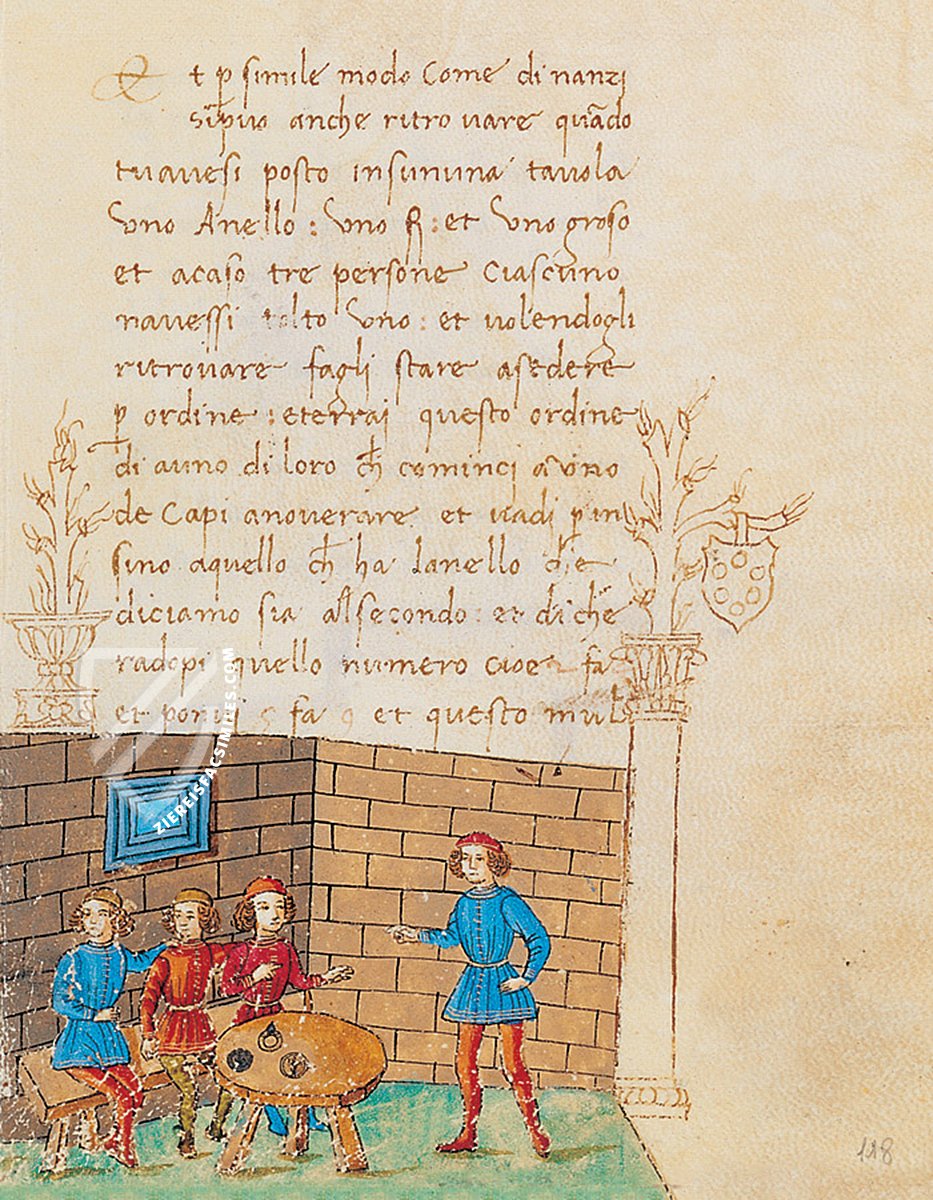 Et p simile modo Come dinanzi
sipuo anche ritrovare quãdo
tuavesi posto insununa tavola
vno Anello : vno : et vno groso
et acaso tre persone Ciascuno
navessi tolto vno : et volendogli
ritrovare fagli stare asedere
p ordine : eterrai questo ordine
di auno di loro ch cominci a vno
de Capi anoverare et vadi p in
sino aquello ch ha lanello ch e
diciamo sia al secondo : et di che
radopi quello numero cioe fa
et ponvi 5 fa 9 et questo mul
ZIEREISFACSIMILES.COM
118